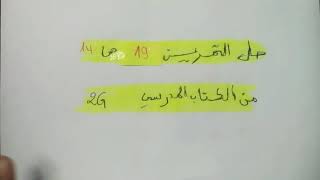 حل التمرين 19 ص 14
من الكتاب المدرسي 2G